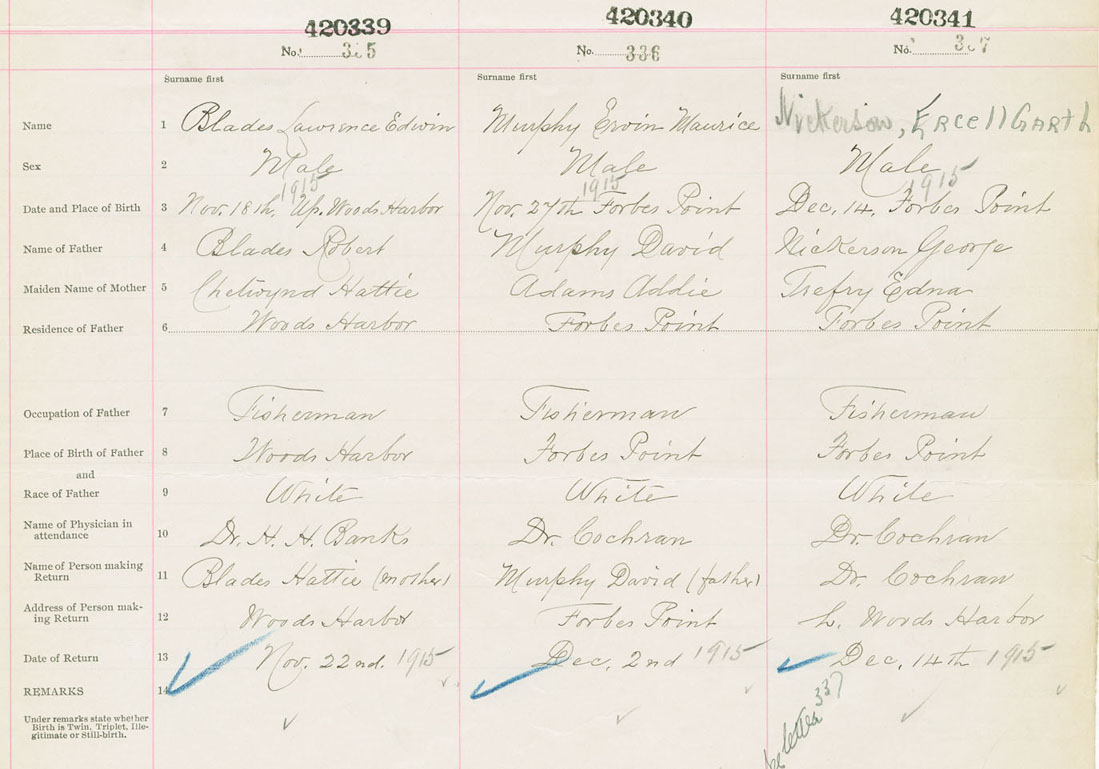 420339 420340 420341
No. 335 No. 336 No. 337
Surname first Surname first Surname first
Name 1 Blades Lawrence Edwin Murphy Ervin Maurice Nickerson, Ercell Garth
Sex 2 Male Male Male
1915 1915 1915
Date and Place of Birth 3 Nov. 18th, Up. Woods Harbor Nov. 27th Forbes Point Dec. 14, Forbes Point
Name of Father 4 Blades Robert Murphy David Nickerson George
Maiden Name of Mother 5 Chetwynd Hattie Adams Addie Trefry Edna
Residence of Father 6 Woods Harbor Forbes Point Forbes Point
Occupation of Father 7 Fisherman Fisherman Fisherman
Place of Birth of Father 8 Woods Harbor Forbes Point Forbes Point
and
Race of Father 9 White White White
Name of Physician in
attendance 10 Dr. H. H. Banks Dr. Cochran Dr. Cochran
Name of Person making
Return 11 Blades Hattie (mother) Murphy David (father) Dr. Cochran
Address of Person mak-
ing Return 12 Woods Harbor Forbes Point L. Woods Harbor
Date of Return 13 Nov. 22nd. 1915 Dec. 2nd 1915 Dec. 14th 1915
REMARKS 14
Under remarks state whether
Birth is Twin, Triplet, Ille-
gitimate or Still-birth.
letter 337